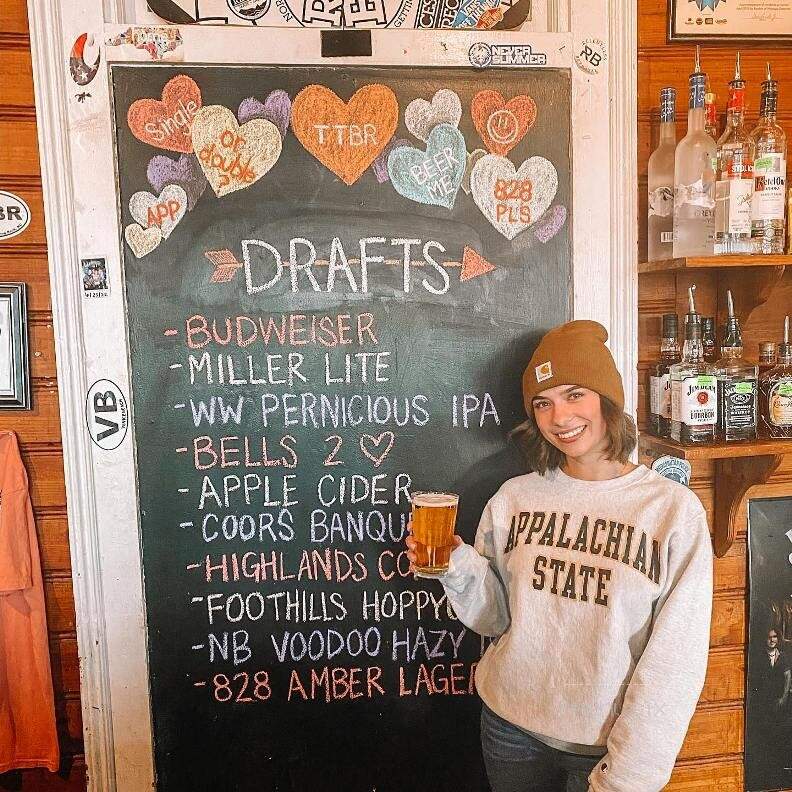 NEVER
SUMMER
RB
Single
or
double
?
TTBR
BEER
ME
828
PLS
APP
BR
DRAFTS
-BUDWEISER
-MILLER LITE
-WW PERNICIOUS IPA
-BELLS 2 ♡
-APPLE CIDER
-COORS BANQU
-HIGHLANDS CO
-FOOTHILLS HOPPY
-NB VOODOO HAZY
-828 AMBER LAGER
VB
carhartt
APPALACHIAN
STATE
JIM BEAM
BOURBON
Ketel One